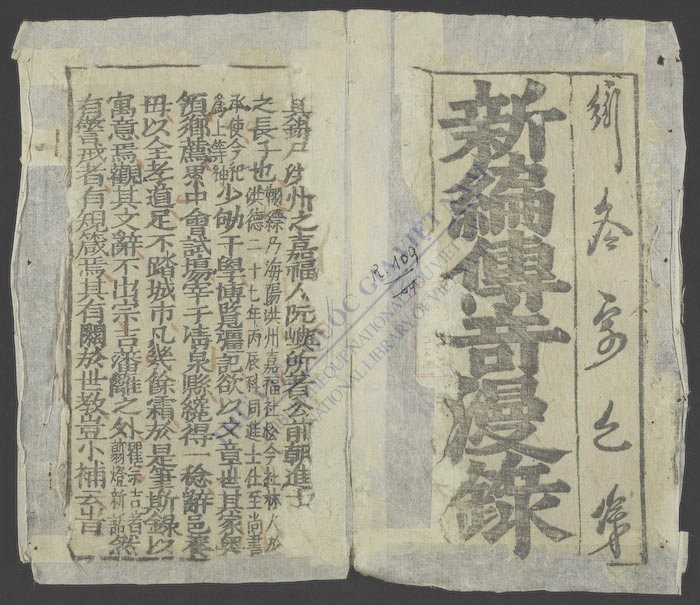 新編傳奇漫錄
其錄乃洪州之嘉福人阮嶼所著公前朝進士
之長子也
翔縹乃海陽洪州嘉福社松今杜林人
洪德二十七年丙辰科同進士仕至尚書
承使今祀
爲上等神
少劬于學博覽彊記欲以文章世其家粵
領鄉薦累中會試場宰于清泉縣纔得一稔辭邑養
母以全孝道足不踏城市凡幾餘霜於是筆斯錄以
寓意焉觀其文辭不出宗吉藩籬之外
瞿宗吉著
剪燈新話
然
有警戒者有規箴焉其有關於世教豈小補云旹
R.109
QUỐC GIA VIỆT NAM
NATIONAL LIBRARY OF VIETNAM